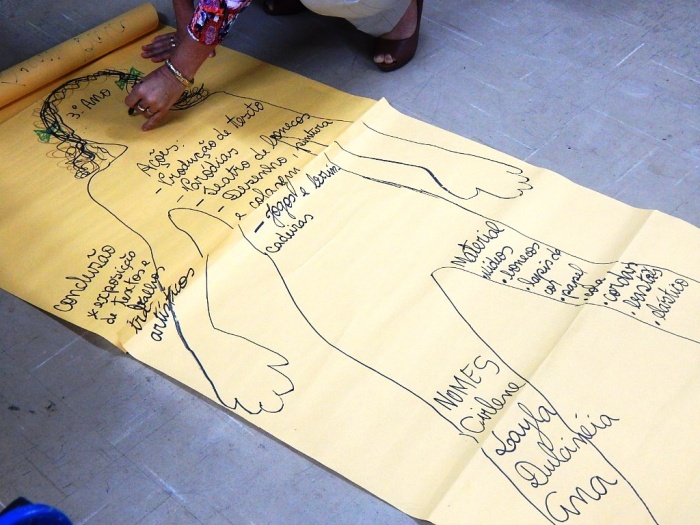 3º Ano
Ações:
- Produção de texto
- Paródias
- Teatro de bonecos
- Desenho pintura
e colagem
- Jogos e brin
cadeiras
Conclusão
* exposição
de textos e
trabalhos
artísticos
Material
vídios
• bonecos
• lápis de
cor
• papel
• cola
• cordas
• bastão
• plástico
NOMES
Cirlene
Layla
Dulcinéia
Ana